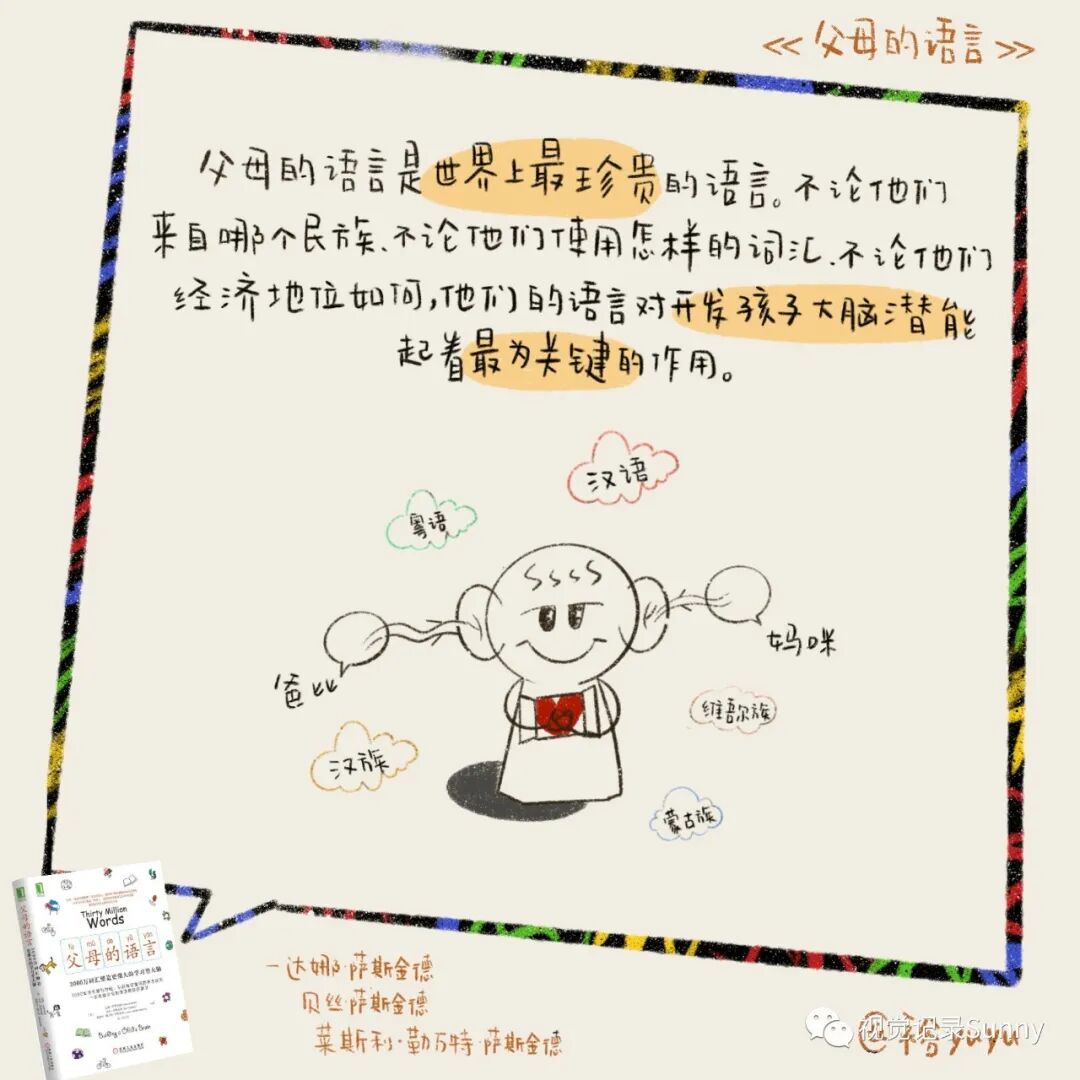 《父母的语言》
父母的语言是世界上最珍贵的语言。不论他们
来自哪个民族、不论他们使用怎样的词汇、不论他们
经济地位如何,他们的语言对开发孩子大脑潜能
起着最为关键的作用。
汉语
粤语
妈咪
爸比
维吾尔族
汉族
蒙古族
父母的语言
Thirty Million
Words
fù mǔ de yǔ yán
父母的语言
3000万词汇塑造更强大的学习型大脑
Building a Child's Brain
机械工业出版社
—达娜·萨斯金德
贝丝·萨斯金德
莱斯利·勒万特·萨斯金德
视觉记录Sunny
yuyu